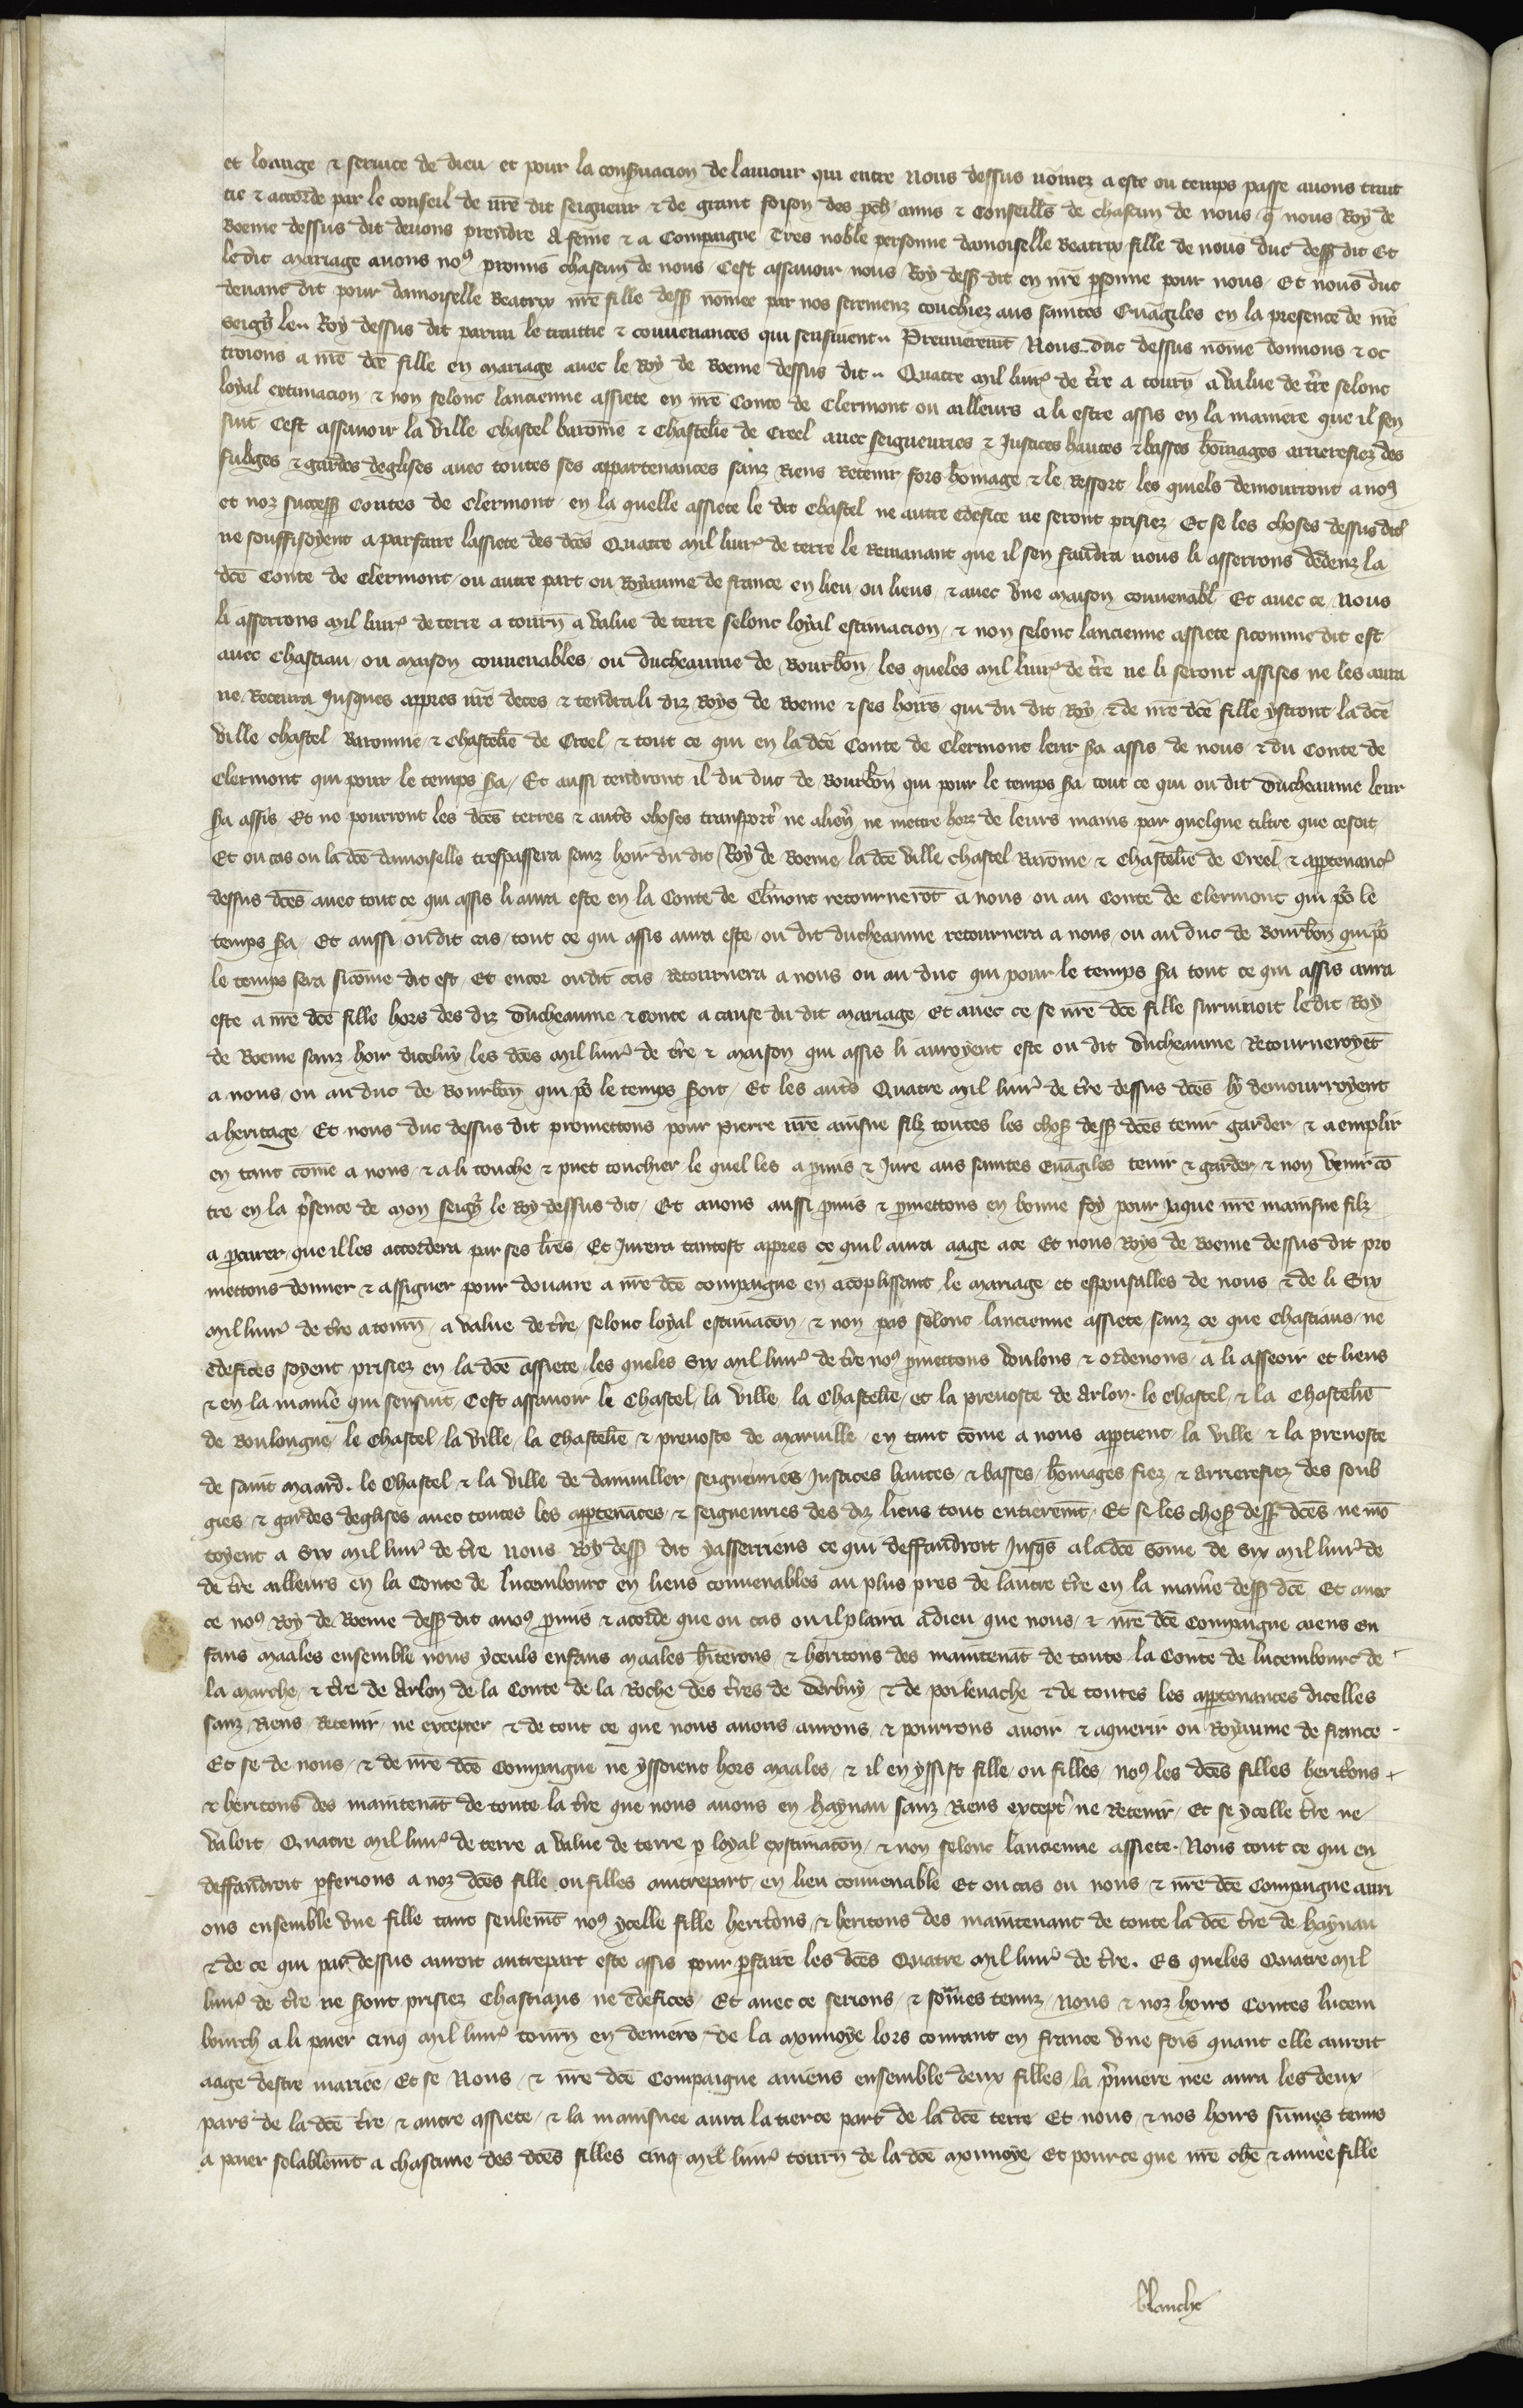 et loange & seruice de dieu / et pour la conseruacion de lamour qui entre Nous dessus nomez a este ou temps passe auons trait
tie & accorde par le conseil de nre dit seigneur & de grant foison des pch amis & Conseillrs de chascun de nous q nous Roy de
Boeme dessus dit deuons prendre A feme & a Compaigne Tres noble personne damoiselle Beatrix fille de nous duc dess dit Et
ledit mariage auons no9 promis chascun de nous / Cest assauoir nous Roy dess dit en nre psonne pour nous / Et nous duc
deuant dit pour damoiselle Beatrix nre fille dess nomee par nos seremenz touchiez aus saintes Euāgiles en la presence de nre
seigr le.. Roy dessus dit parmi le traittie & conuenances qui sensiuent .. Premieremt Nous duc dessus nome donnons & oc
troions a nre dce fille en mariage auec le Roy de Boeme dessus dit .. Quatre mil liurs de tre a tourn a value de tre selonc
loyal extimacion / & non selonc lancienne assiete en nre Conte de Clermont ou ailleurs a li estre assis en la maniere que il sen
suit Cest assauoir la ville Chastel baronie & Chastelie de Creel auec seigneuries & Justices hautes & basses homages arrierefiez des
subges & gardes deglises auec toutes ses appartenances sanz Riens Retenir fors homage & le Ressort / les quiels demourront a no9
et noz success Contes de Clermont / en la quelle assiete le dit Chastel ne autre edefice ne seront prisiez Et se les choses dessus dit
ne souffisoyent a parfaire lassiete des dces Quatre mil liurs de terre le Remanant que il sen faudra nous li asserrons dedenz la
dce Conte de Clermont / ou autre part ou Royaume de france en lieu / ou lieus / & auec vne maison conuenabl Et auec ce / Nous
li asserrons mil liurs de terre a tourn a value de terre selonc loyal estimacion / & non selonc lancienne assiete sicomme dit est /
auec Chastiau / ou maison conuenables / ou ducheaume de Bourbon / les queles mil liurs de tre ne li seront assises ne les aura
ne Receura Jusques appres nre deces & tendra li diz Roys de Boeme & ses hoirs qui du dit Roy / & de nre dce fille ystront la dce
ville chastel Baronnie & Chastelie de Creel / & tout ce qui en la dce Conte de Clermont leur sa assis de nous / & du Conte de
Clermont qui pour le temps sa / Et aussi tendront il du duc de Bourbon qui pour le temps sa tout ce qui ou dit Ducheaume leur
sa assis / Et ne pourront les dces terres & autres choses transportr ne aliener ne mettre hors de leurs mains par quelque tiltre que ce soit
Et ou cas ou la dce damoiselle trespassera sanz hoir du dit Roy de Boeme / la dce ville chastel Baronie / & Chastelie de Creel / & apptenancs
dessus dces auec tout ce qui assis li aura este en la Conte de Clmont retournerot a nous ou au Conte de Clermont qui po le
temps sa / Et aussi / ou dit cas / tout ce qui assis aura este / ou dit ducheaume retournera a nous / ou au duc de Bourbon qui po
le temps sera sicome dit est / Et encor ou dit cas Retournera a nous ou au duc qui pour le temps sa tout ce qui assis aura
este a nre dce fille hors des diz Ducheaume & Conte a cause du dit mariage / Et auec ce se nre dce fille suruiuoit le dit Roy
de Boeme sanz hoir diceluy / les dces mil liurs de tre & maison qui assis li auroyent este ou dit Ducheaume Retourneroyet
a nous / ou au duc de Bourbon qui po le temps soit / Et les autrs Quatre mil liurs de tre dessus dces ly demourroyent
a heritage / Et nous duc dessus dit promettons pour Pierre nre ainsne filz toutes les chos dess dces tenir garder / & aemplir
en tant come a nous / & a li touche / & puet touchier / le quel les a pmis & Jure aus saintes euāgiles tenir & garder / & non venir co
tre en la psence de mon seigr le Roy dessus dit / Et auons aussi pmis & pmettons en bonne foy pour Jaque nre mainsne filz
a pcurer que il les accordera par ses lres / Et Jurera tantost appres ce quil aura aage a ce Et nous Roys de Boeme dessus dit pro
mettons donner & assigner pour douaire a nre dce compaigne en acoplissant le mariage / et espousalles de nous / & de li Six
mil liurs de tre a tourn / a value de tre / selonc loyal estimacon / & non pas selonc lancienne assiete / sanz ce que Chastiaus / ne
edefices soyent prisiez en la dce assiete / les queles Six mil liurs de tre no9 pmettons voulons & ordenons / a li asseoir et lieus
& en la maniere qui sensuit / Cest assauoir le Chastel / la ville / la Chastelie / et la preuoste de Arlon . le Chastel / & la Chastelie
de Boulongne / le Chastel / la ville / la Chastelie & preuoste de Maruille / en tant come a nous apptient / la ville / & la preuoste
de saint Maard . le Chastel & la ville de damuiller / seigneuries / Justices hautes / & basses / homages / fiez / & arrierefiez des soub
gies / & gardes deglises auec toutes les apptenāces / & seigneuries des diz lieus tout entieremt / Et se les chos dess dces ne mo
toyent a Six mil liurs de tre Nous Roy dess dit yasserriens ce qui deffaudroit Jusqs a la dce Some de Six mil liurs de
de tre ailleurs en la Conte de Lucembourc en lieus conuenables au plus pres de lautre tre en la maniere dess dce Et auec
ce no9 Roy de Boeme dess dit auos pmis & acorde que ou cas ou il plaira a dieu que nous / & nre dce Compaigne aiens en
fans maales ensemble nous yceuls enfans maales hiterons / & heritons des maintenāt de toute la Conte de Lucembourc de
la Marche / & tre de Arlon de la Conte de la Roche des tres de Derbuy / & de poilenache & de toutes les apptenances dicelles
sanz Riens Retenir / ne excepter & de tout ce que nous auons aurons / & pourrons auoir / & aquerir ou Royaume de france
Et se de nous / & de nre dce Compaigne ne yssoient hoirs maales / & il en yssist fille / ou filles / no9 les dces filles heritrons
& heritons des maintenāt de toute la tre que nous auons en haynau sanz Riens exceptr ne Retenir / Et se ycelle tre ne
valoit / Quatre mil liurs de terre a value de terre p loyal extimacon / & non selonc lancienne assiete . Nous tout ce qui en
deffaudroit pferions a noz dces fille ou filles autrepart / en lieu conuenable Et ou cas ou nous / & nre dce Compaigne auri
ons ensemble vne fille tant seulemt no9 ycelle fille heritrons / & heritons des maintenant de toute la dce tre de haynau
& de ce qui par dessus auroit autrepart este assis pour pfaire les dces Quatre mil liurs de tre . Es queles Quatre mil
liurs de tre ne sont prisiez Chastiaus ne edefices / Et auec ce serions / & somes tenuz / Nous & noz hoirs Contes Lucem
bourch a li paier cinq mil liurs tourn en deniers de la monnoye lors courant en france vne fois quant elle auroit
aage destre mariee / Et se Nous / & nre dce Compaigne auiens ensemble deux filles / la pmiere nee aura les deux
pars de la dce tre / & autre assiete / & la mainsnee aura la tierce part de la dce terre / Et nous / & nos hoirs sumes tenus
a paier solablemt a chascune des dces filles cinq mil liurs tourn de la dce monnoye / Et pource que nre che & amee fille
blanche